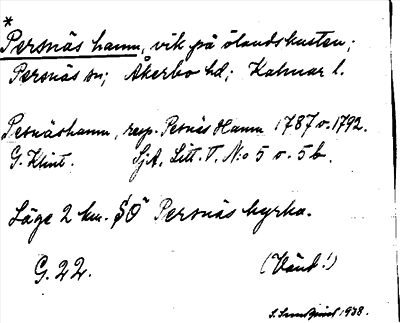 *
Persnäs hamn, vik på ölandskusten;
Persnäs sn; Åkerbo hd; Kalmar l.
Pesnäshamn, resp. Pesnäs Hamn 1787 o. 1792.
G. Klint. SjA, Litt. V. N:o 5 o. 5b.
Läge 2 km. SÖ Persnäs kyrka.
G. 22. (Vänd!)
1938.